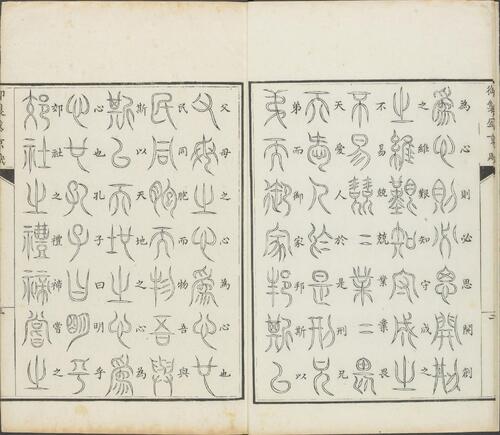 為心則必思開創
之維艱知守成之
不易兢兢業業畏
天愛人於是刑兄
弟而御家邦斯以
父母之心為心也
民同胞而物吾與
斯以天地之心為
心也孔子曰明乎
郊社之禮禘嘗之